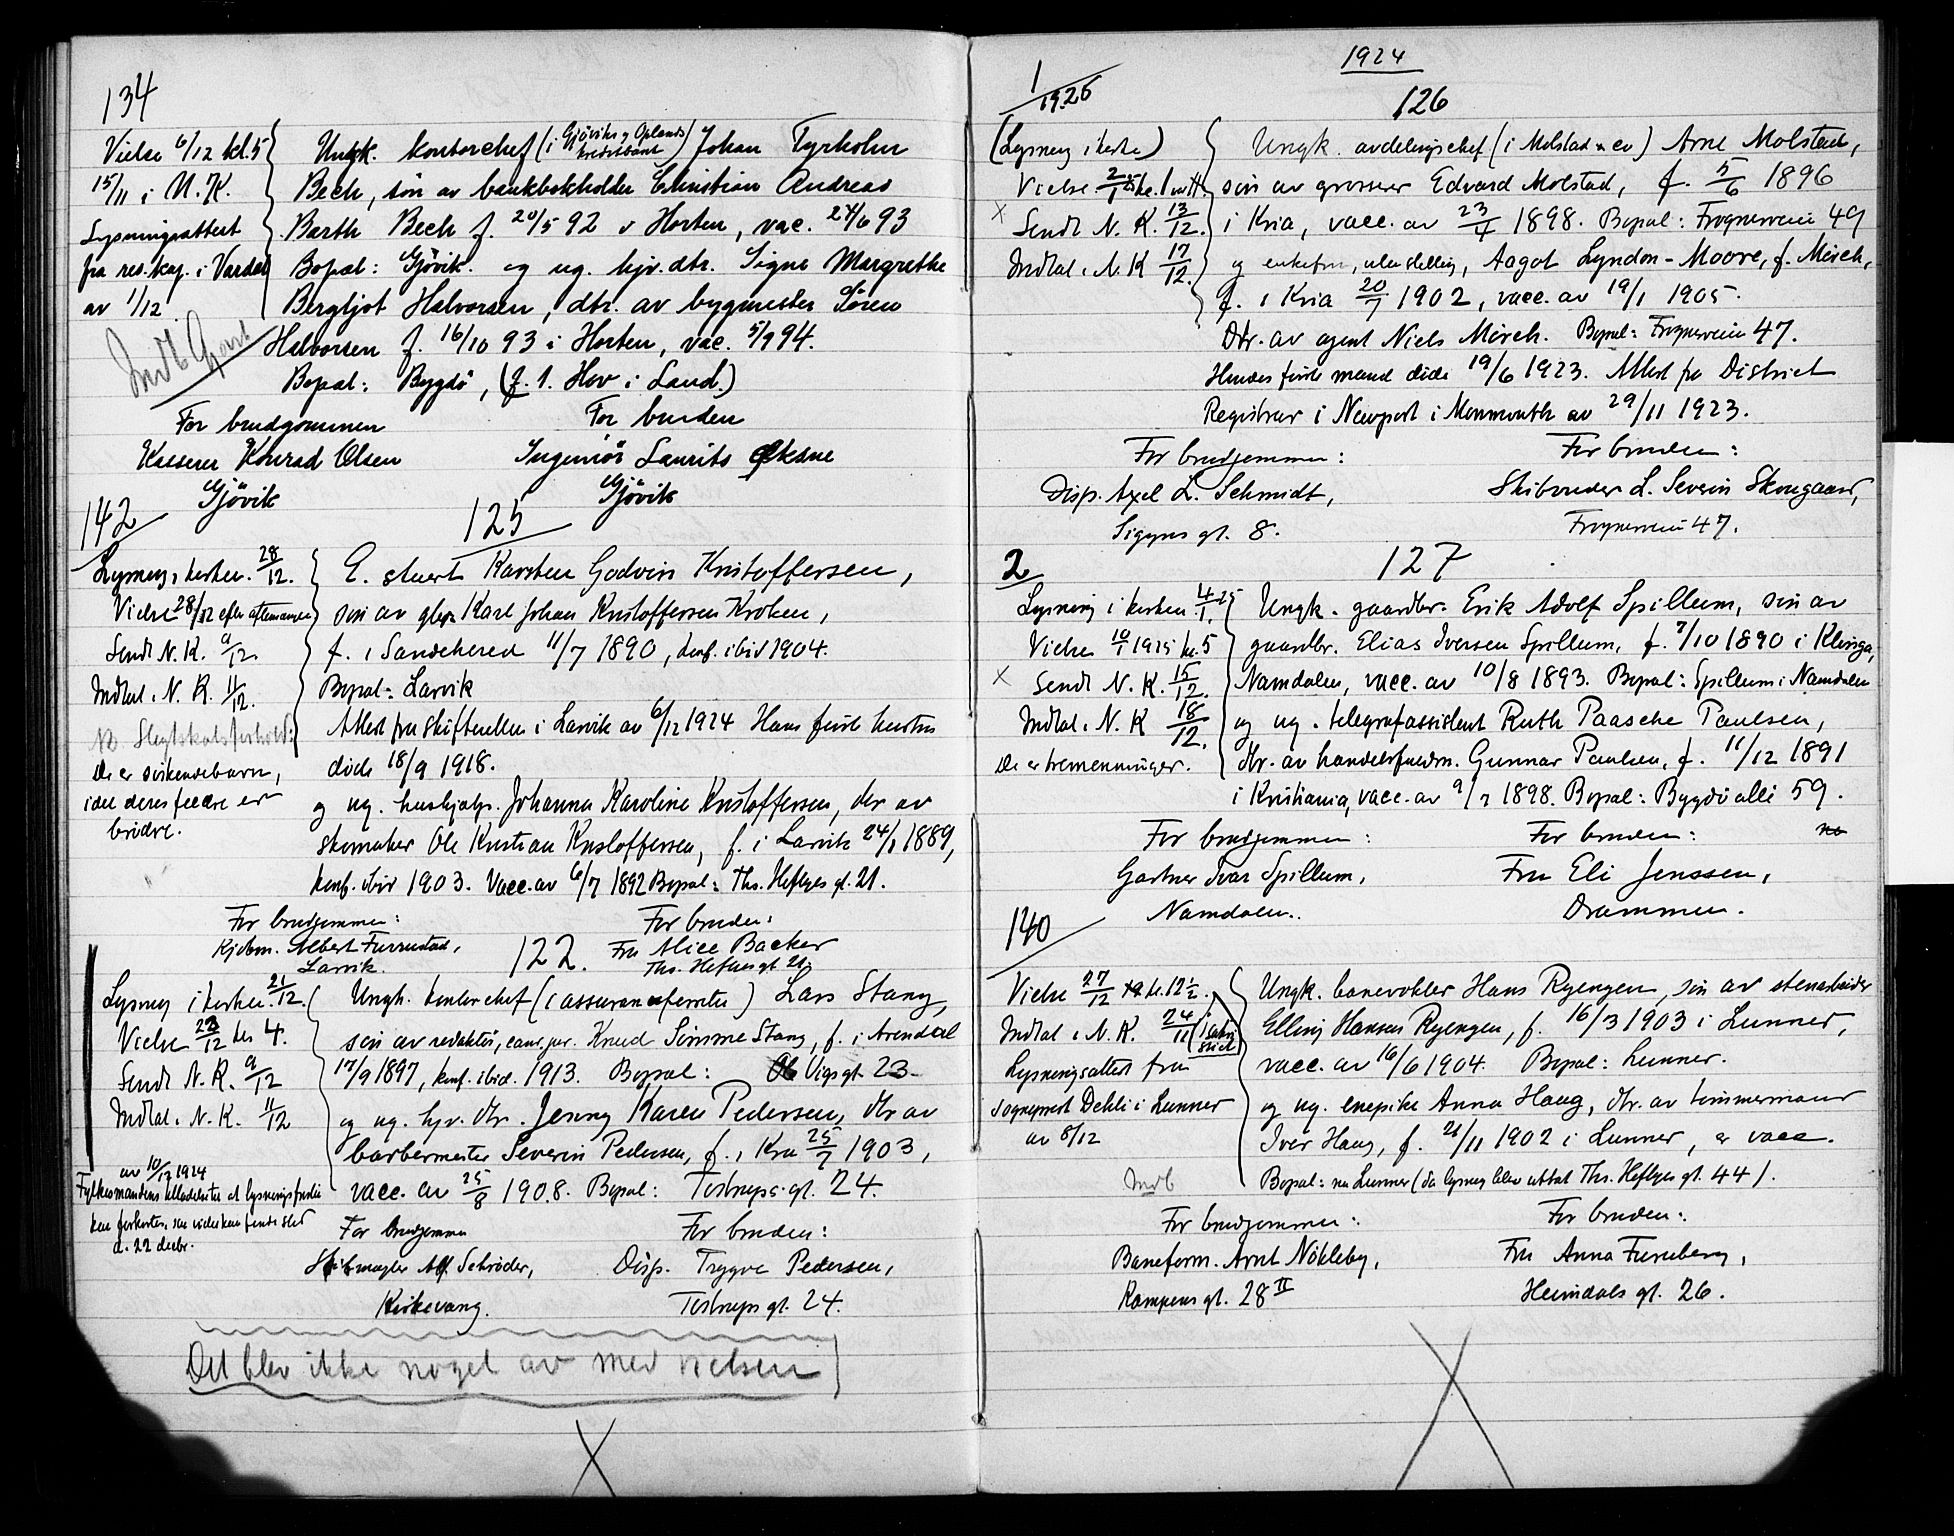 134
Vielse 6/12 kl. 5
15/11 i N. K.
Lysningsattest
fra res. kap. i Vardal
av 1/12
Indb
Ungk. kontorchef (i Gjøviks og Oplands kreditbank) Johan Tyrholm
Bech, søn av bankbokholder Christian Andreas
Barth Bech f. 20/5 92 i Horten, vac. 24/6 93
Bopæl: Gjøvik. og ug. hjv. dtr. Signe Margrethe
Bergljot Halvorsen, dtr. av bygmester Søren
Halvorsen f. 16/10 93 i Horten, vac. 5/9 94.
Bopæl: Bygdø, (f. t. Hov i Land.)
For brudgommen
For bruden
Kasserer Konrad Olsen
Ingeniør Laurits Øksne
Gjøvik
Gjøvik
142
125
Lysning i kirken 28/12.
Vielse 28/12 efter aftensangen
Sendt N. K. 9/12
Indtat i N. K. 11/12.
NB. Slegtskabsforhold:
De er søskendebarn,
idet deres fædre er
brødre.
E. stuert Karsten Godvin Kristoffersen,
søn av Karl Johan Kristoffersen Kroken,
f. i Sandeherred 11/7 1890, konf. ibid 1904.
Bopæl: Larvik
Attest fra skifteretten i Larvik av 6/12 1924 Hans første hustru
døde 18/9 1918.
og ug. hushjælp. Johanna Karoline Kristoffersen, dtr av
skomaker Ole Kristian Kristoffersen, f. i Larvik 24/1 1889,
konf. ibid 1903. Vacc. av 6/7 1892 Bopæl: Ths. Heftyes gt. 21.
For brudgommen:
For bruden:
Kjøbm. Albert Furrustad,
Fru Alice Backer
Larvik.
Ths. Heftyes gt 21.
122.
Lysning i kirken 21/12.
Vielse 23/12 kl 4.
Sendt N. K. 9/12
Indtat i N. K. 11/12
av 10/12 1924
Fylkesmandens tilladelse at lysningsfristen
kan forkortes, saa vielse kan finde sted
d. 22 decbr.
Ungk. kontorchef (i assuranceforretn) Lars Stang,
søn av redaktør, cand. jur. Knud Sømme Stang, f. i Arendal
17/9 1897, konf. ibid. 1913. Bopæl: Vigs gt. 23.
og ug. hjv. dtr. Jenny Karen Pedersen, dtr av
barbermester Severin Pedersen, f. i Kra 25/7 1903,
vacc. av 25/8 1908. Bopæl: Tostrups gt. 24.
For brudgommen
For bruden:
Skibsmægler Alf Schrøder,
Disp. Trygve Pedersen,
Kirkevang.
Tostrups gt. 24.
Det blev ikke noget av med vielsen
1924
1/1925
126
(Lysning i kirke)
Vielse 2/1 25
Sendt N. K. 13/12.
Indtat i N. K 17/12.
Ungk. avdelingschef (i Molstad & co) Arne Molstad,
søn av grosserer Edvard Molstad, f. 5/6 1896
i Kria, vacc. av 23/4 1898. Bopæl: Frognerveien 49
og enkefru, uten stilling, Aagot Lyndon-Moore, f. Mørch,
f. i Kria 20/7 1902, vacc. av 19/1 1905.
Dtr. av agent Niels Mørch. Bopæl: Frognerveien 47.
Hendes første mand døde 19/6 1923. Attest fra District
Registrar i Newport i Monmouth av 29/11 1923.
For brudgommen:
For bruden:
Disp. Axel L. Schmidt,
Skibsreder L. Severin Skougaard,
Sigyns gt. 8.
Frognerveien 47.
2
127
Lysning i kirken 4/1. 25
Vielse 10/1 1925 kl. 5
Sendt N. K. 15/12.
Indtat i N. K 18/12.
De er tremenninger.
Ungk. gaardbr. Erik Adolf Spillum, søn av
gaardbr. Elias Iversen Spillum, f. 7/10 1890 i Klinga,
Namdalen, vacc. av 10/8 1893. Bopæl: Spillum i Namdalen
og ug. telegrafassistent Ruth Paasche Paulsen,
dtr. av handelsfuldm. Gunnar Paulsen, f. 11/12 1891
i Kristiania, vacc. av 9/7 1898. Bopæl: Bygdø allé 59.
For brudgommen:
For bruden:
Gartner Ivar Spillum,
Fru Eli Jenssen,
Namdalen.
Drammen.
140
Vielse 27/12 kl. 12 1/2.
Indtat i N. K. 24/11
Lysningsattest fra
sogneprest Dehli i Lunner
av 8/12
Indb
Ungk. banevokter Hans Ryengen, søn av stenarbeider
Elling Hansen Ryengen, f. 16/3 1903 i Lunner,
vacc. av 16/6 1904. Bopæl: Lunner.
og ug. enepike Anna Haug, dtr. av tømmermand
Iver Haug, f. 21/11 1902 i Lunner, er vacc.
Bopæl: nu Lunner (da lysning blev uttat Ths. Heftyes gt. 44).
For brudgommen:
For bruden:
Baneform. Arnt Nökleby,
Fru Anna Furuberg,
Kampens gt. 28 II
Heimdals gt. 26.